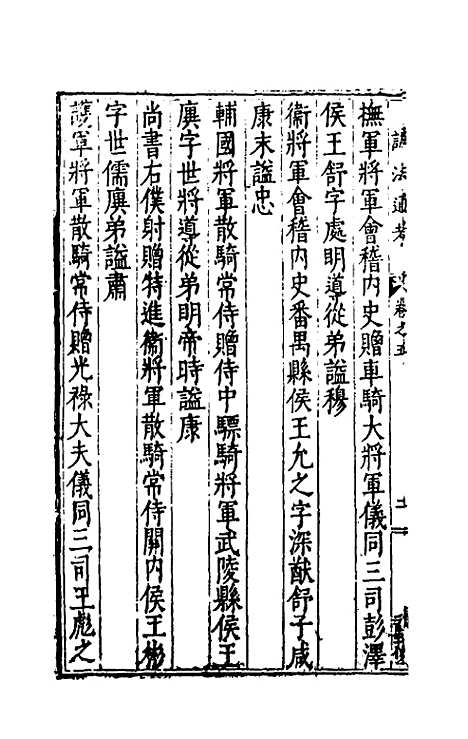 諡法通考
卷之五
撫軍將軍會稽內史贈車騎大將軍儀同三司彭澤
侯王舒字處明導從弟諡穆
衞將軍會稽內史番禺縣侯王允之字深猷舒子咸
康末諡忠
輔國將軍散騎常侍贈侍中驃騎將軍武陵縣侯王
廙字世將導從弟明帝時諡康
尚書右僕射贈特進衞將軍散騎常侍關內侯王彬
字世儒廙弟諡肅
護軍將軍散騎常侍贈光祿大夫儀同三司王彪之